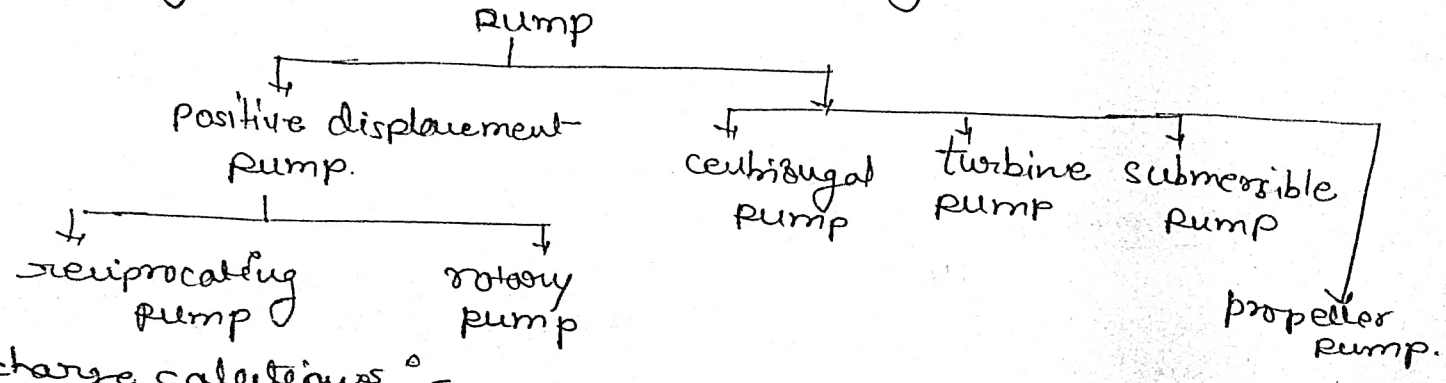 Pump
Positive displacement
pump.
centrifugal
pump
turbine
pump
submersible
pump
reciprocating
pump
rotory
pump
propeller
pump.
charge